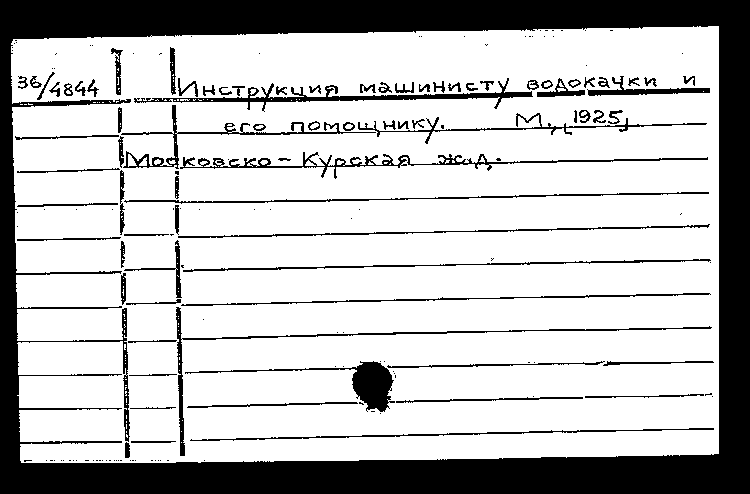 36/4844 Инструкция машинисту водокачки и
его помощнику. М., [1925]
Московско-Курская ж.д.